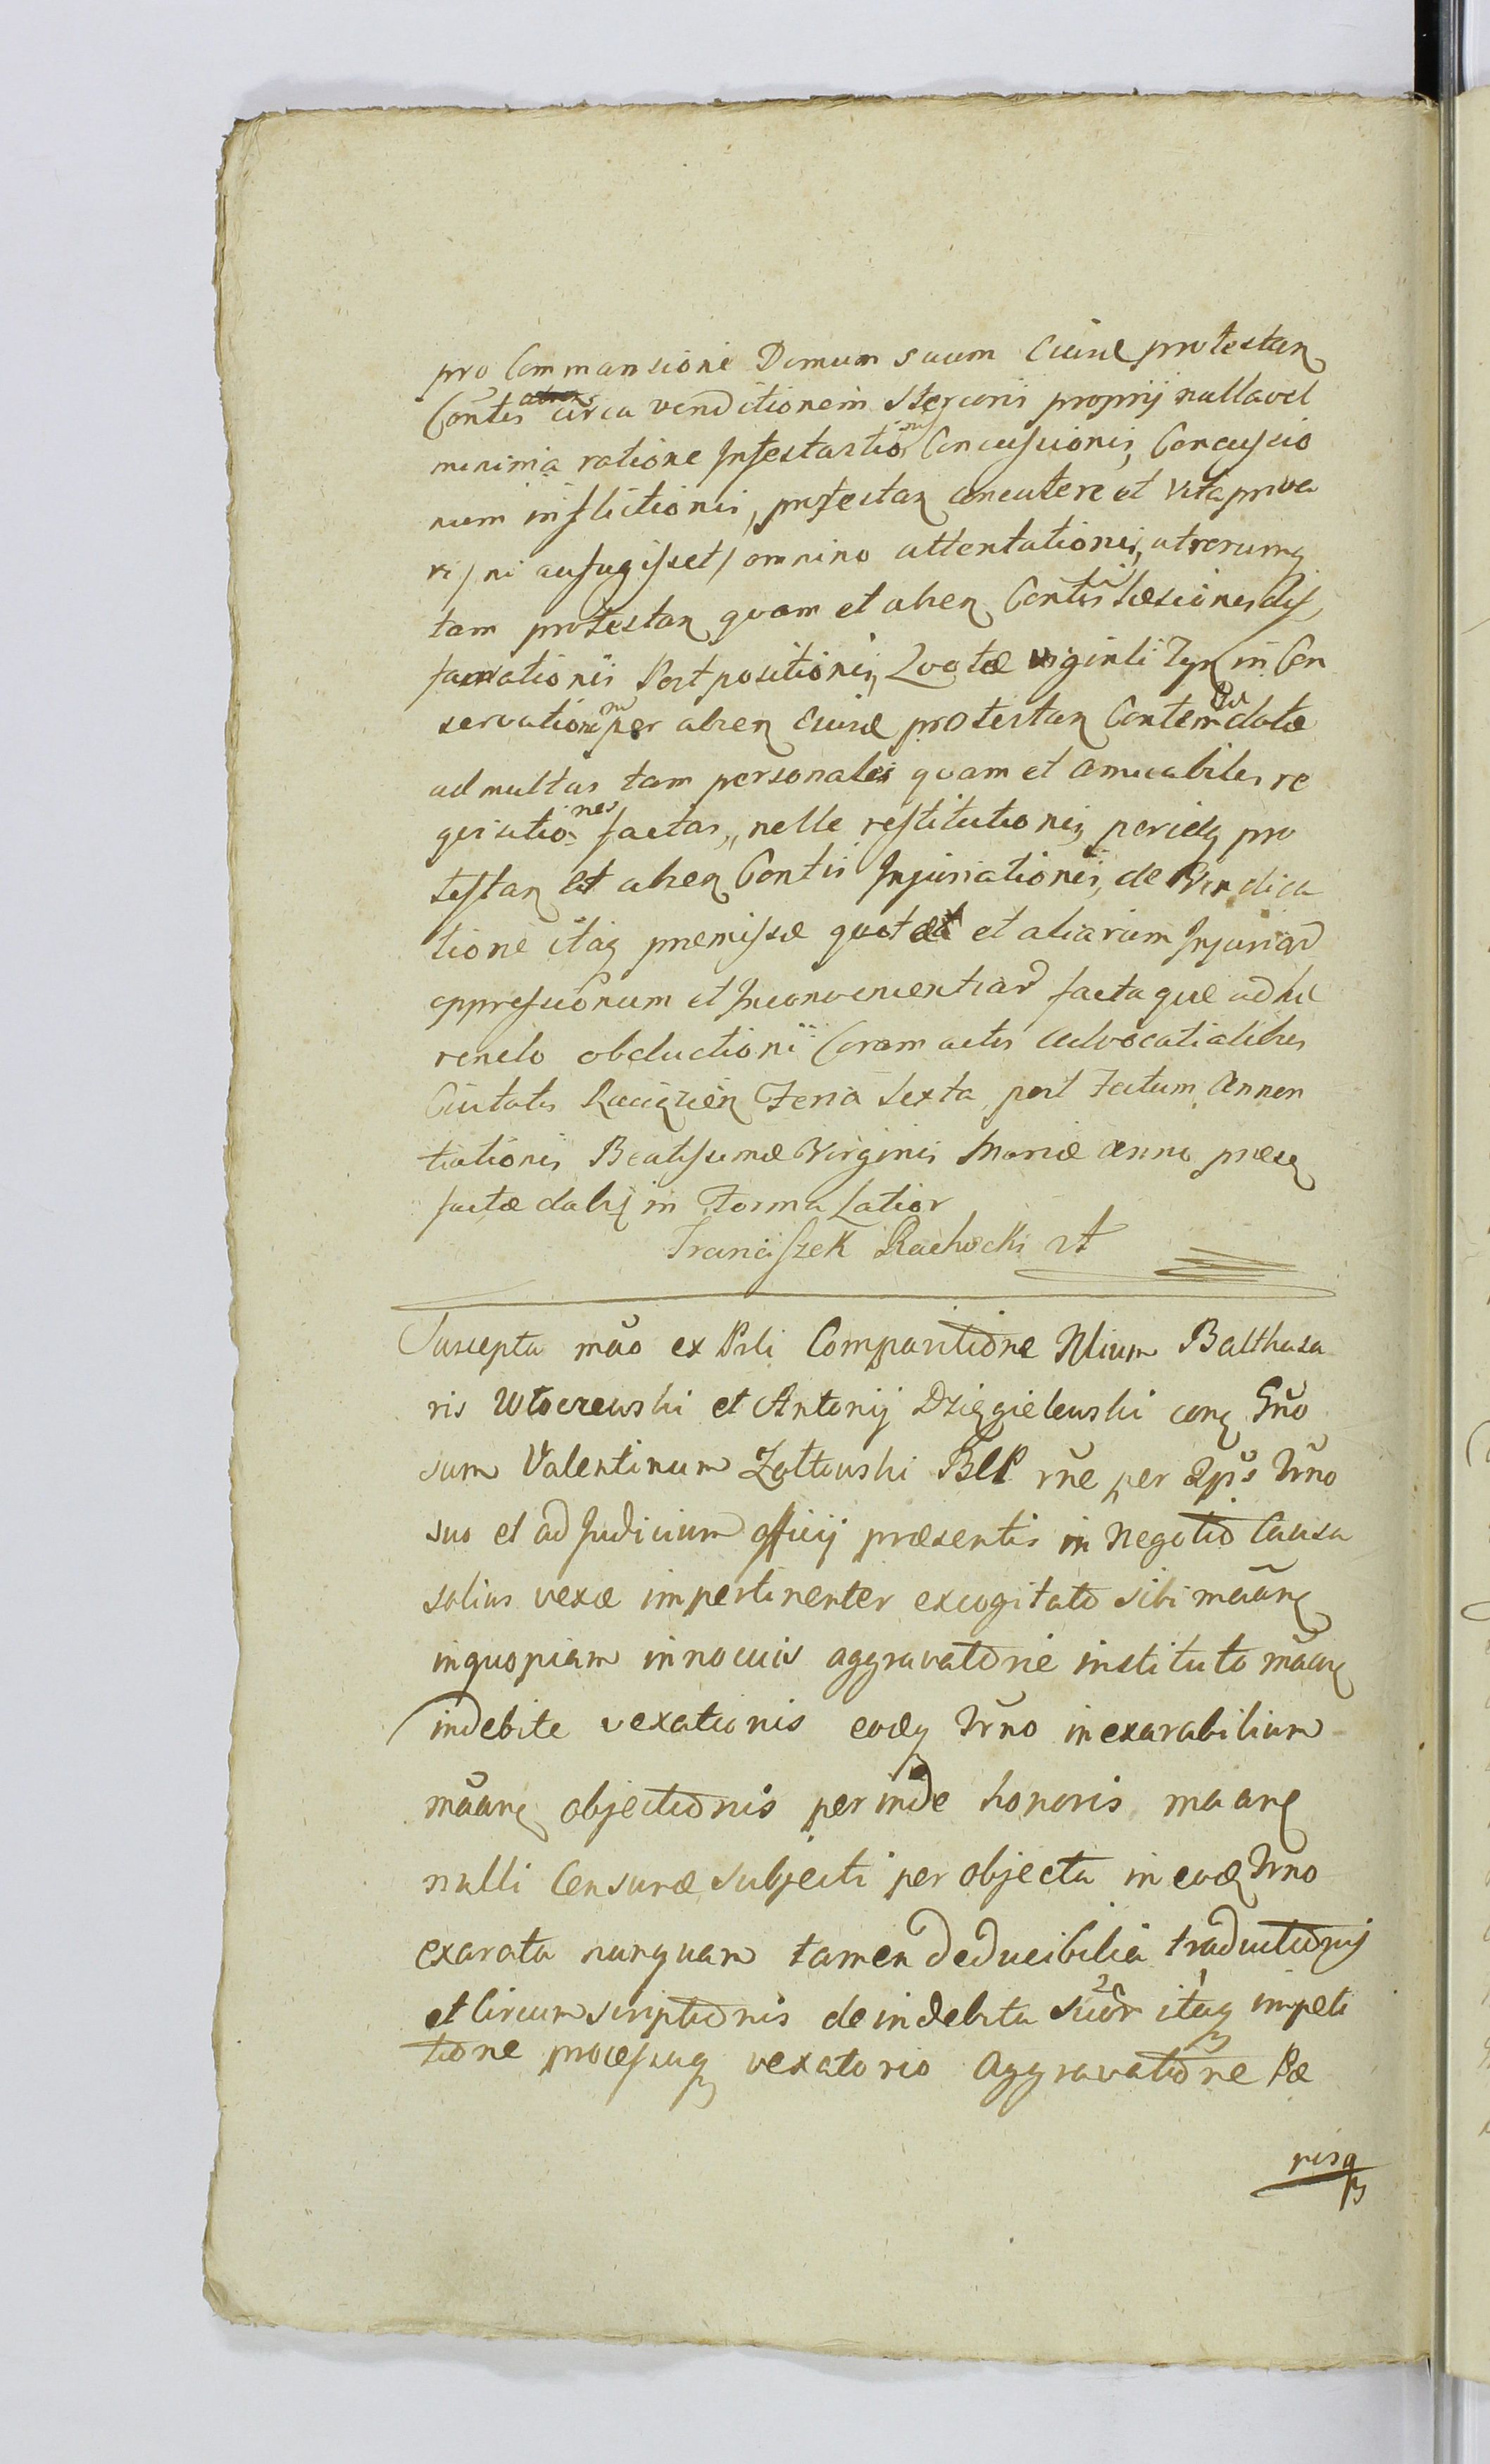 pro Commansione Domum suum Eiusd protestan
Contis circa venditionem Stercoris proprij nulla vel
minima ratione Infestationis Concussionis, Concussio
num inflictionis, protestan concutere et Vita priva
ri / ni aufugisset / omnino attentationis, utrerumq
tam protestan quam et ahen Contis Læsionis dif,
famationis Postpositionis, Quotæ viginti Tyn in Con
servationem per ahen Eiusd protestan Contem datæ
ad multas tam personales quam et amicabiles re
quisitiones factas, nelle restitutionis, periclq pro
testan et ahen Contis Injuriationis, de Vindica
tione itaq premissæ quotæ et aliarum Injuriar
oppressionum et Inconvenientiar factaque adhuc
rendo obductioni Coram actis advocatialibus
Civitatis Raciązien Feria Sexta post Festum Annun
tiationis Beatissimæ Virginis Mariæ Anno præs
factæ in Forma Latior
Franciszek Rachocki
Suscepta mão ex Prli Comparitione Nlium Balthasa
ris Włoczewski et Antonij Dzięgielewski conq Gno
sum Valentinum Żołtowski rne per Ipss Trno
suo et ad Judicium officij præsentis in Negotio Causa
solius vexæ impertinenter excogitato sibi mãanq
inquopiam innocuis aggravatorie instituto mãanq
indebite vexationis eodq Trno inexarabilium
mãanq objectionis perinde honoris maanq
nulli Censuræ subjecti per objecta in eodq Trno
exarata nunquam tamen deducibilia traductionis
et Circumscriptionis de indebita suor itaq impeti
tione processuq vexatorio Aggravatione Pæ
risq